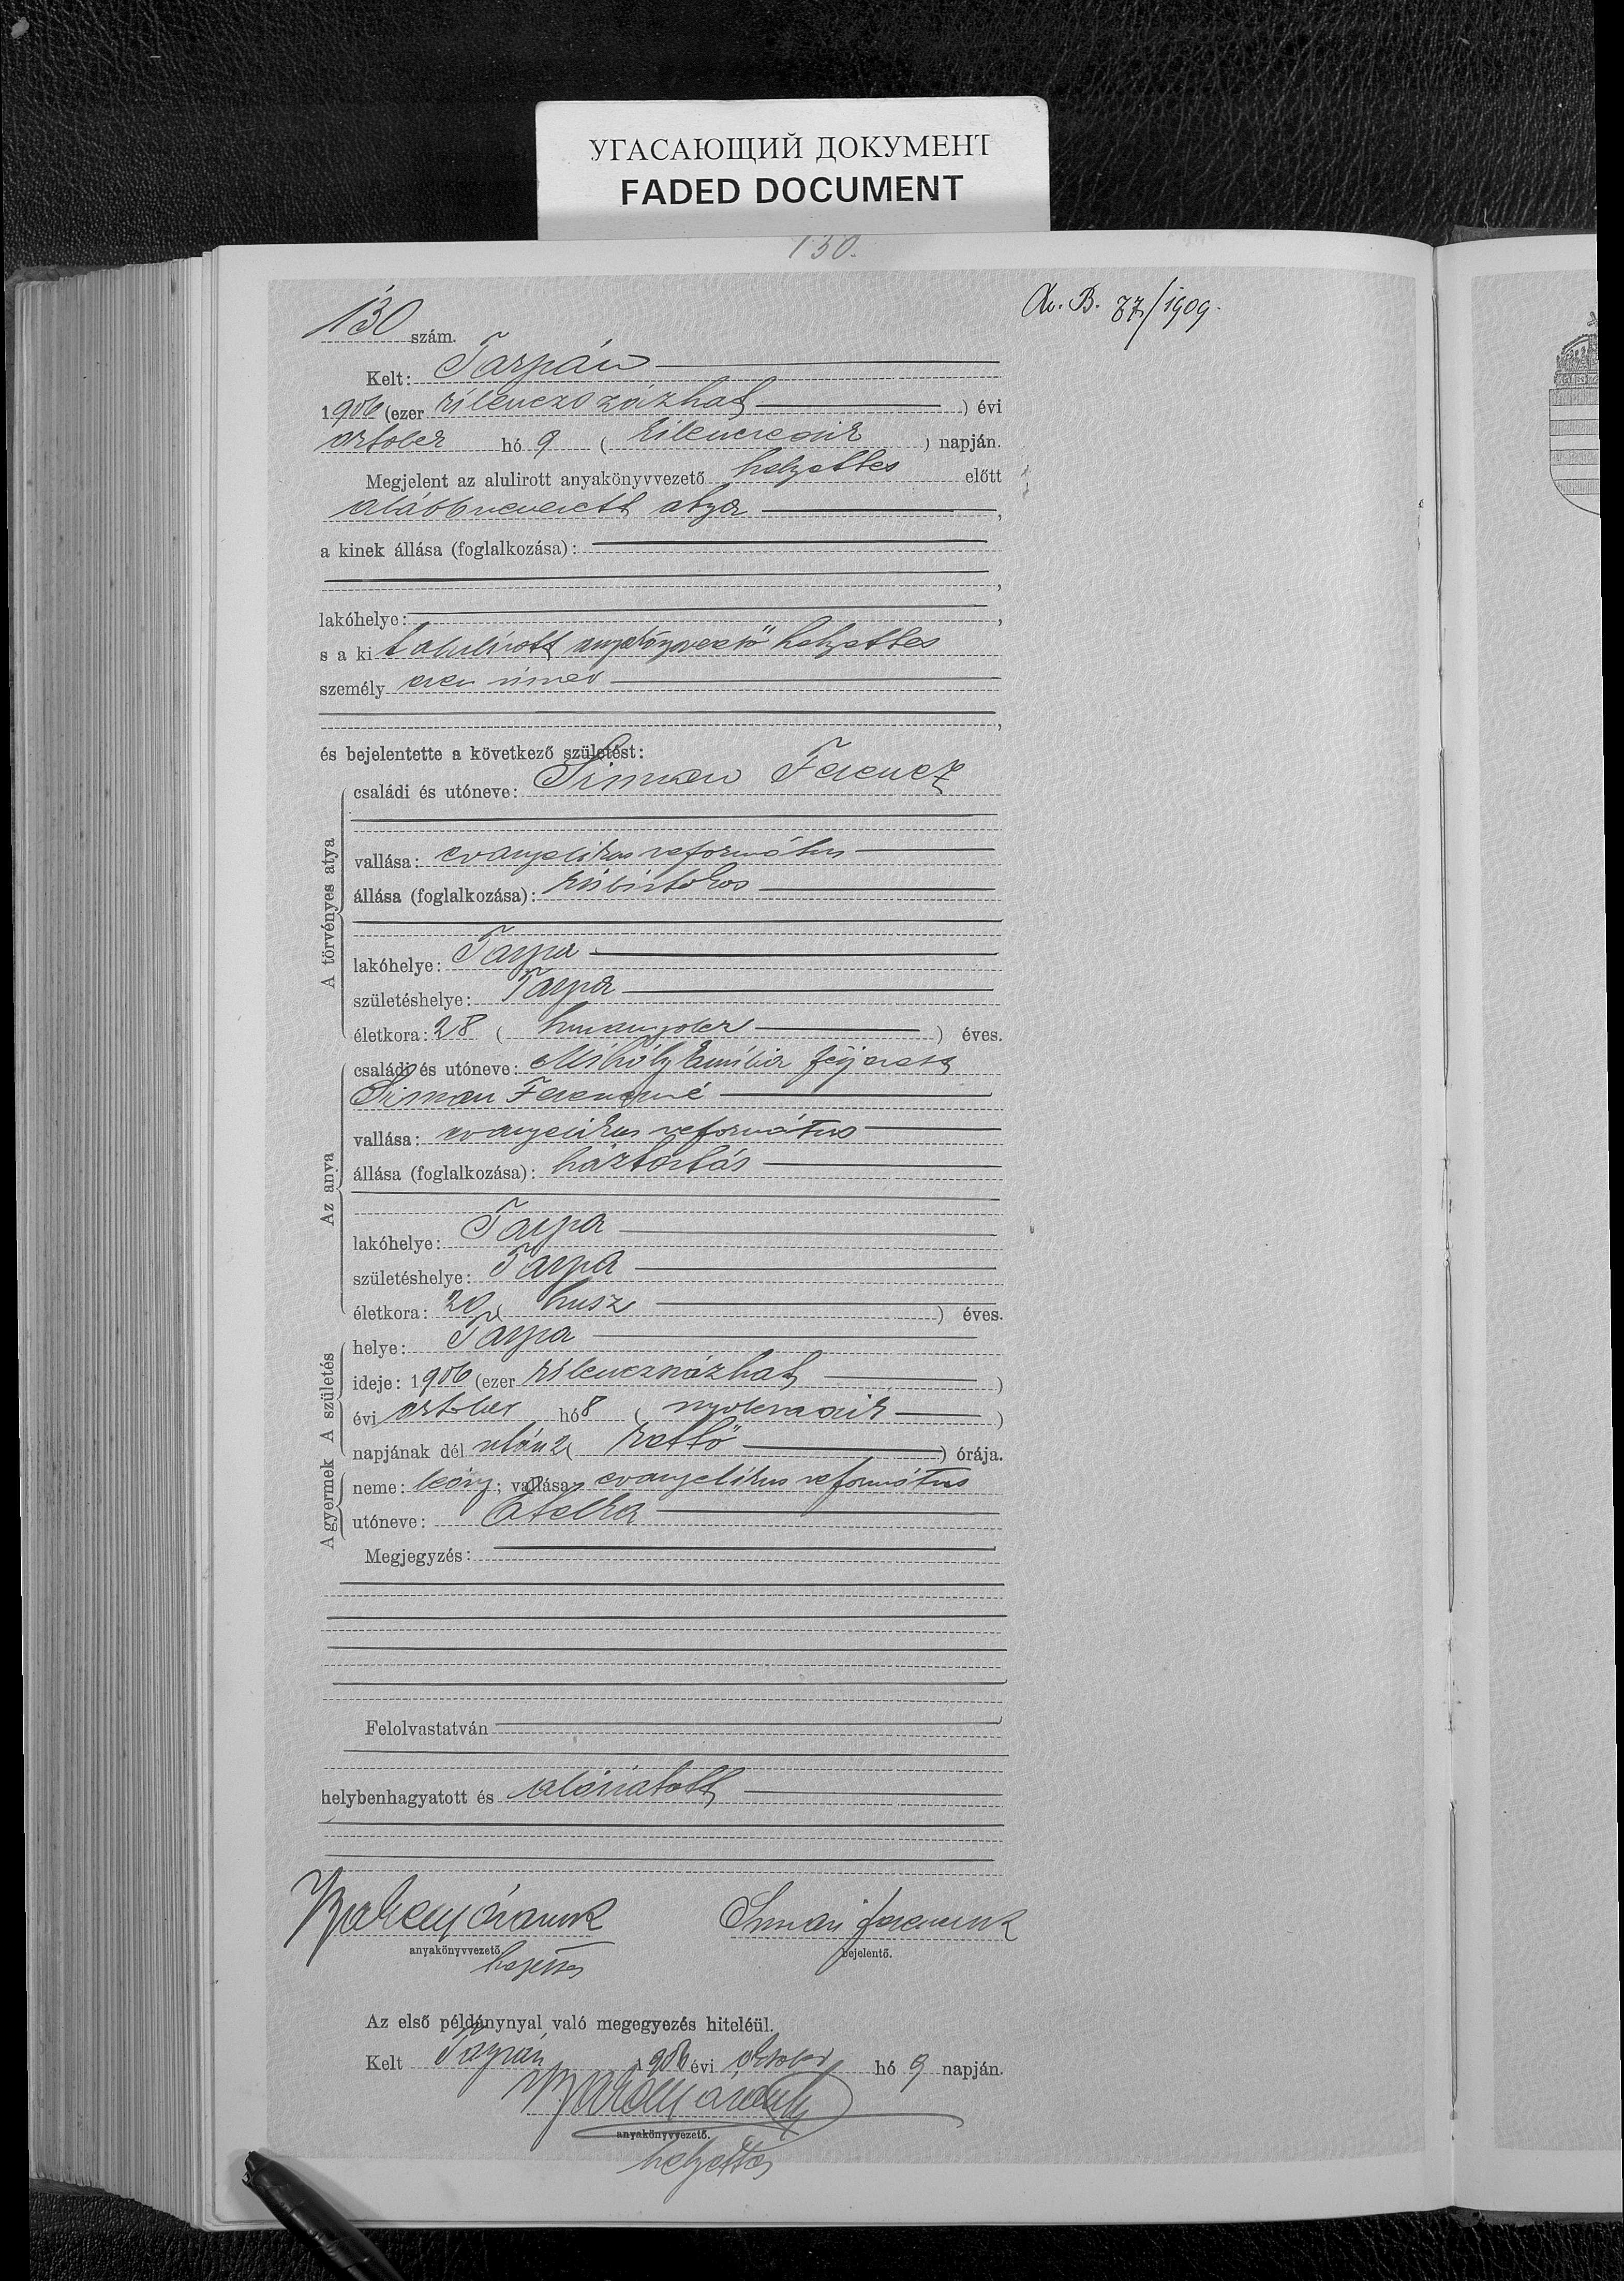 УГАСАЮЩИЙ ДОКУМЕНТ
FADED DOCUMENT
130.
130 szám.
B. 87/1909.
Kelt: Tarpán
1906 (ezer kilenczszázhat) évi
október hó 9 (kilenczedik) napján.
Megjelent az alulirott anyakönyvvezető helyettes előtt
alábbnevezett atya,
a kinek állása (foglalkozása):
,
lakóhelye: ,
s a kit alulírott anyakönyvvezető helyettes
személyesen ismer
,
és bejelentette a következő születést:
A törvényes atya
családi és utóneve: Simon Ferencz
vallása: evangelikus református
állása (foglalkozása): kisbirtokos
lakóhelye: Tarpa
születéshelye: Tarpa
életkora: 28 (huszonnyolcz) éves.
Az anya
családi és utóneve: Mihály Emilia férjezett
Simon Ferenczné
vallása: evangelikus református
állása (foglalkozása): háztartás
lakóhelye: Tarpa
születéshelye: Tarpa
életkora: 20 (husz) éves.
A születés
helye: Tarpa
ideje: 1906 (ezer kilenczszázhat)
évi október hó 8 (nyolczadik)
napjának dél után 2 (kettő) órája.
A gyermek
neme: leány; vallása: evangelikus református
utóneve: Etelka
Megjegyzés:
Felolvastatván
helybenhagyatott és aláíratott
anyakönyvvezető
helyettes
Simon Ferencz
bejelentő.
Az első példánynyal való megegyezés hiteléül.
Kelt Tarpán 1906 évi október hó 9 napján.
anyakönyvvezető.
helyettes